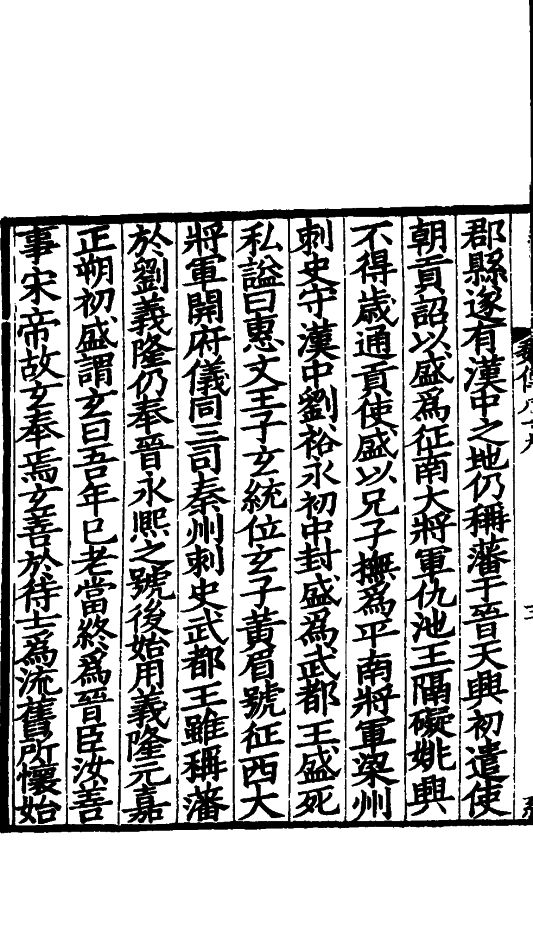 郡縣遂有漢中之地仍稱藩于晉天興初遣使
朝貢詔以盛爲征南大將軍仇池王隔礙姚興
不得歲通貢使盛以兄子撫爲平南將軍梁州
刺史守漢中劉裕永初中封盛爲武都王盛死
私謚曰惠文王子玄統位玄子黃眉號征西大
將軍開府儀同三司秦州刺史武都王雖稱藩
於劉義隆仍奉晉永熙之號後始用義隆元嘉
正朔初盛謂玄曰吾年已老當終爲晉臣汝善
事宋帝故玄奉焉玄善於待士爲流舊所懷始